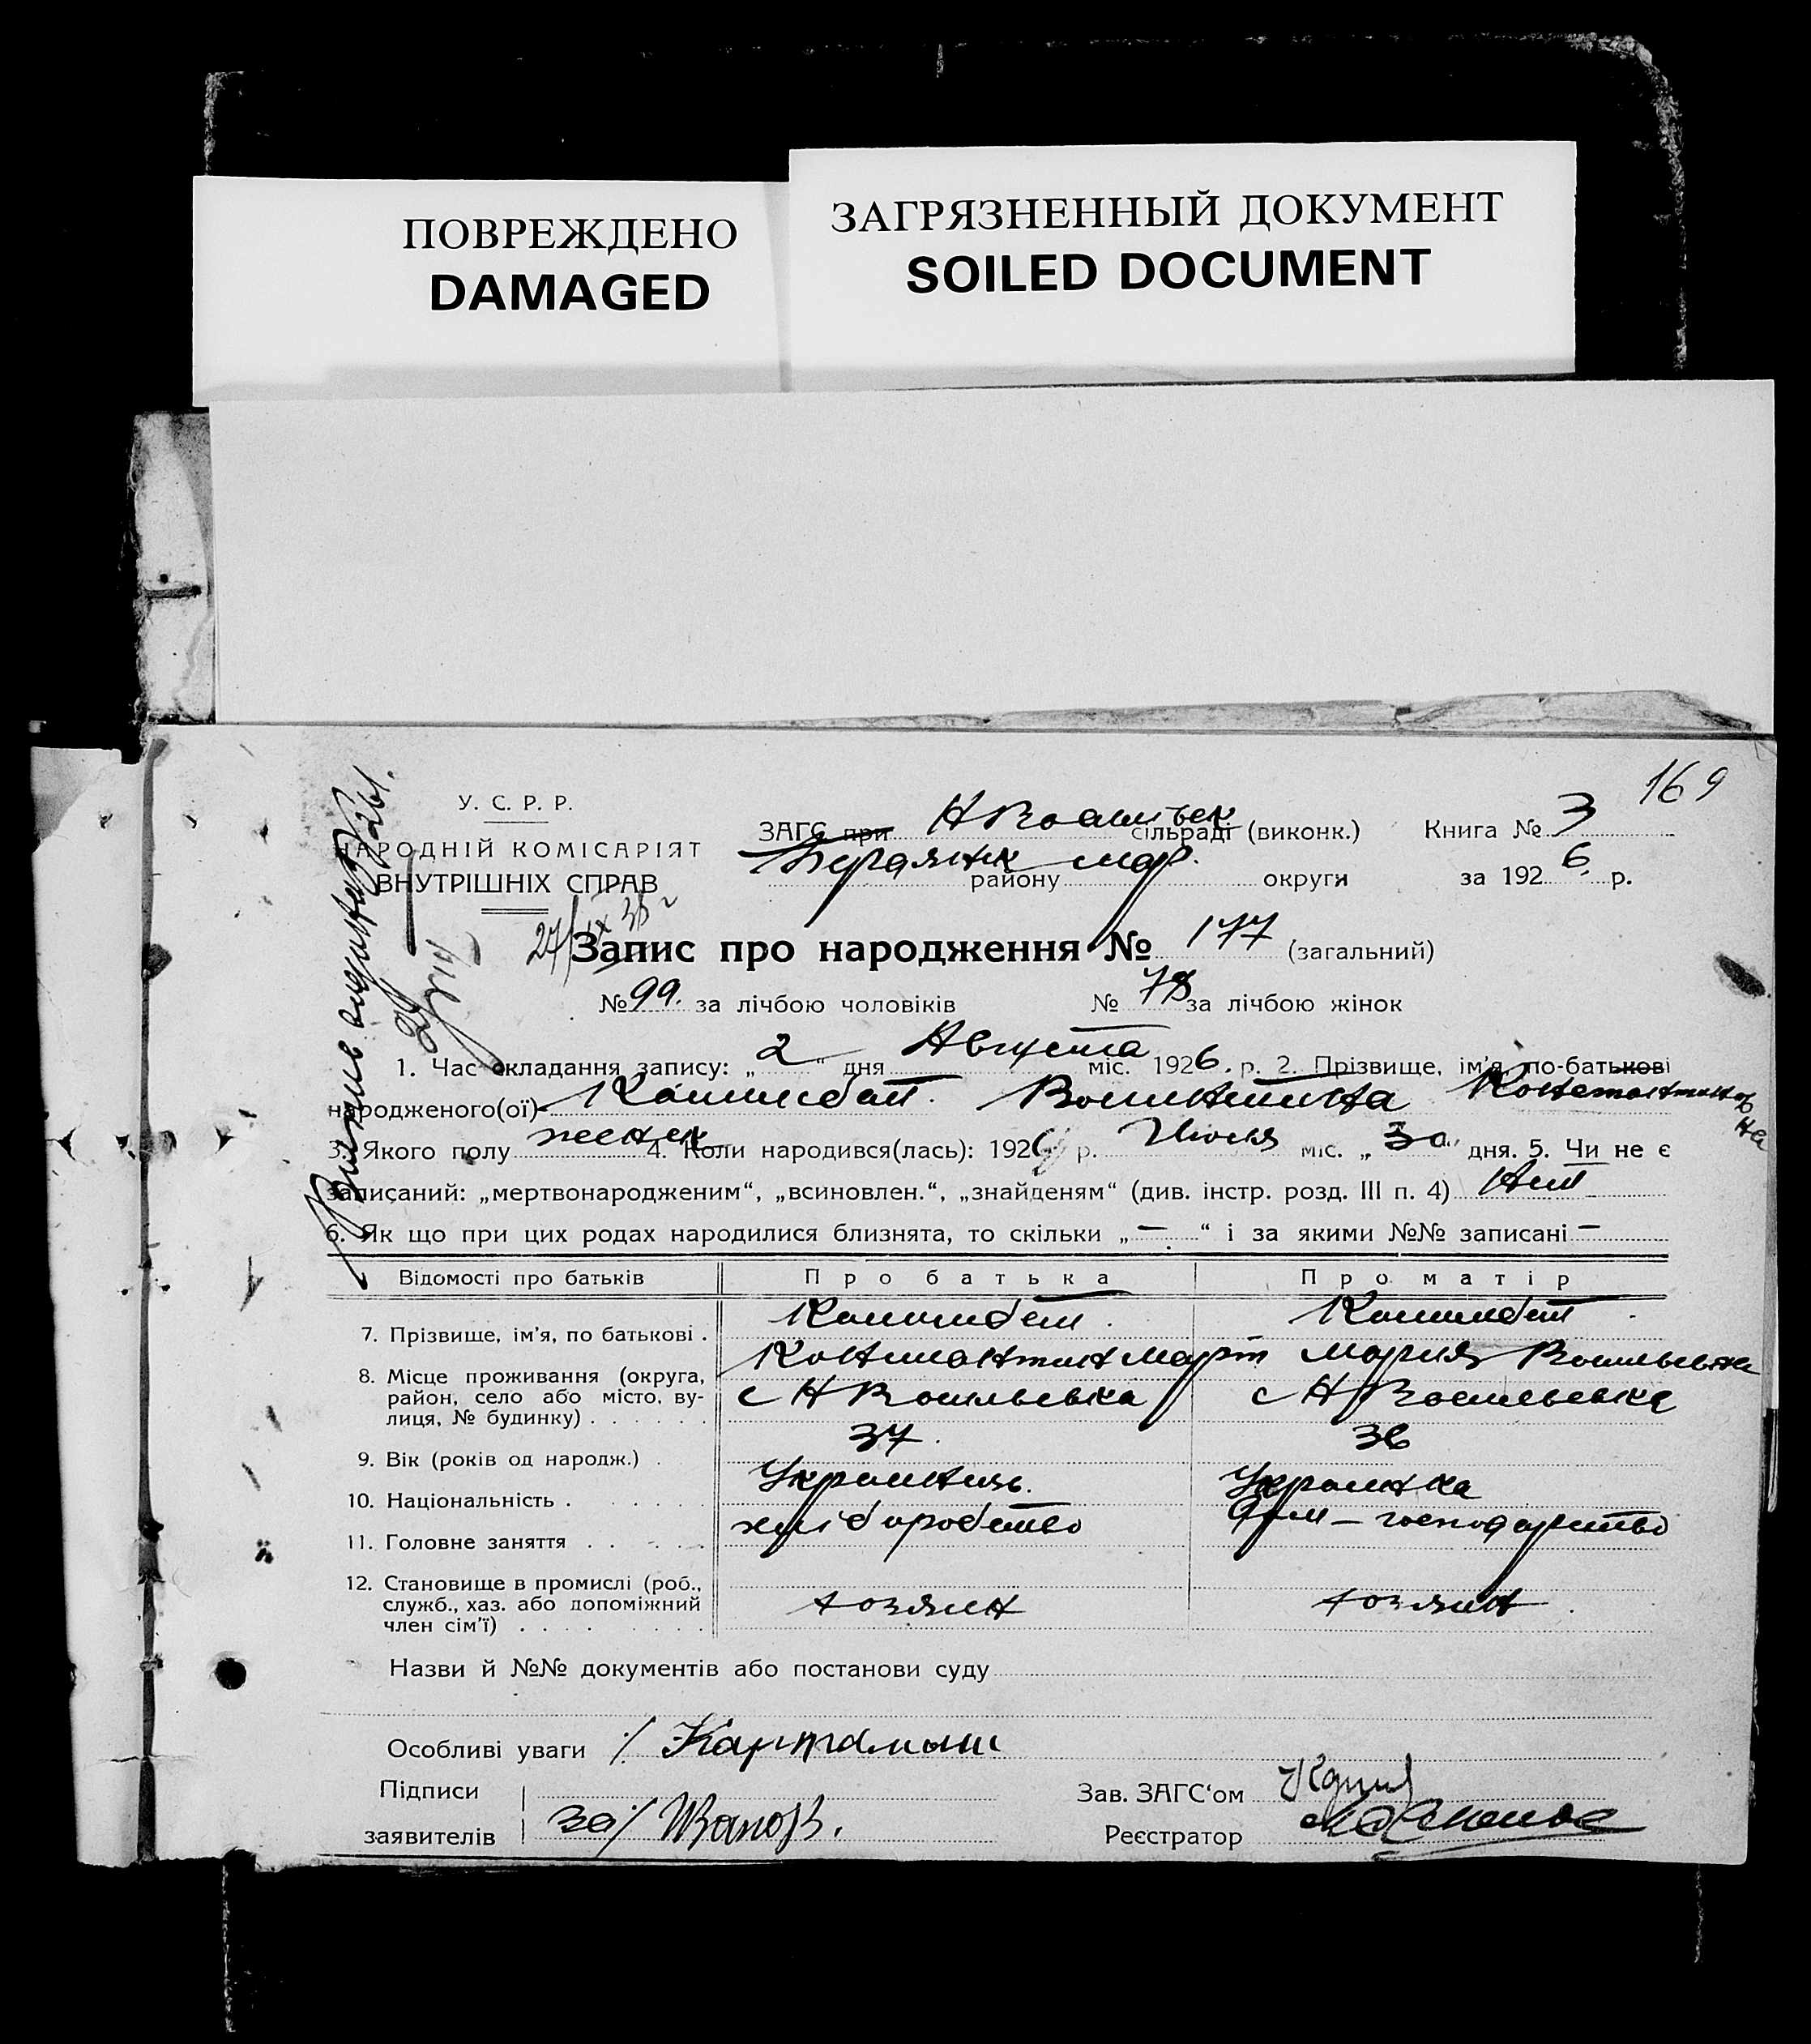 ПОВРЕЖДЕНО
DAMAGED
ЗАГРЯЗНЕННЫЙ ДОКУМЕНТ
SOILED DOCUMENT
169
У. С. Р. Р.
НАРОДНІЙ КОМІСАРІЯТ
ВНУТРІШНІХ СПРАВ
ЗАГС при сільраді (виконк.) Книга № 3
району округи за 1926 р.
Запис про народження № 177 (загальний)
№ 99. за лічбою чоловіків № 78 за лічбою жінок
1. Час складання запису: „2“ дня Августа міс. 1926. р. 2. Прізвище, ім'я, по-батькові
народженого(ої) Валентина Константиновна
3. Якого полу женск 4. Коли народився(лась): 1926 р. Июля міс. „30“ дня. 5. Чи не є
записаний: „мертвонародженим“, „всиновлен.“, „знайденям“ (див. інстр. розд. III п. 4) Нет
6. Як що при цих родах народилися близнята, то скільки „—“ і за якими №№ записані —
Відомості про батьків Про батька Про матір
7. Прізвище, ім'я, по батькові .
Константин Мария Васильевна
8. Місце проживання (округа, район, село або місто, вулиця, № будинку) с Н Васильевка с Н Васильевка
9. Вік (років од народж.) . 37. 36
10. Національність . Украинець. Украинка
11. Головне заняття хліборобство господарство
12. Становище в промислі (роб., служб., хаз. або допоміжний член сім'ї) хозяин хозяин
Назви й №№ документів або постанови суду
Особливі уваги
Підписи
заявителів
Зав. ЗАГС'ом
Реєстратор